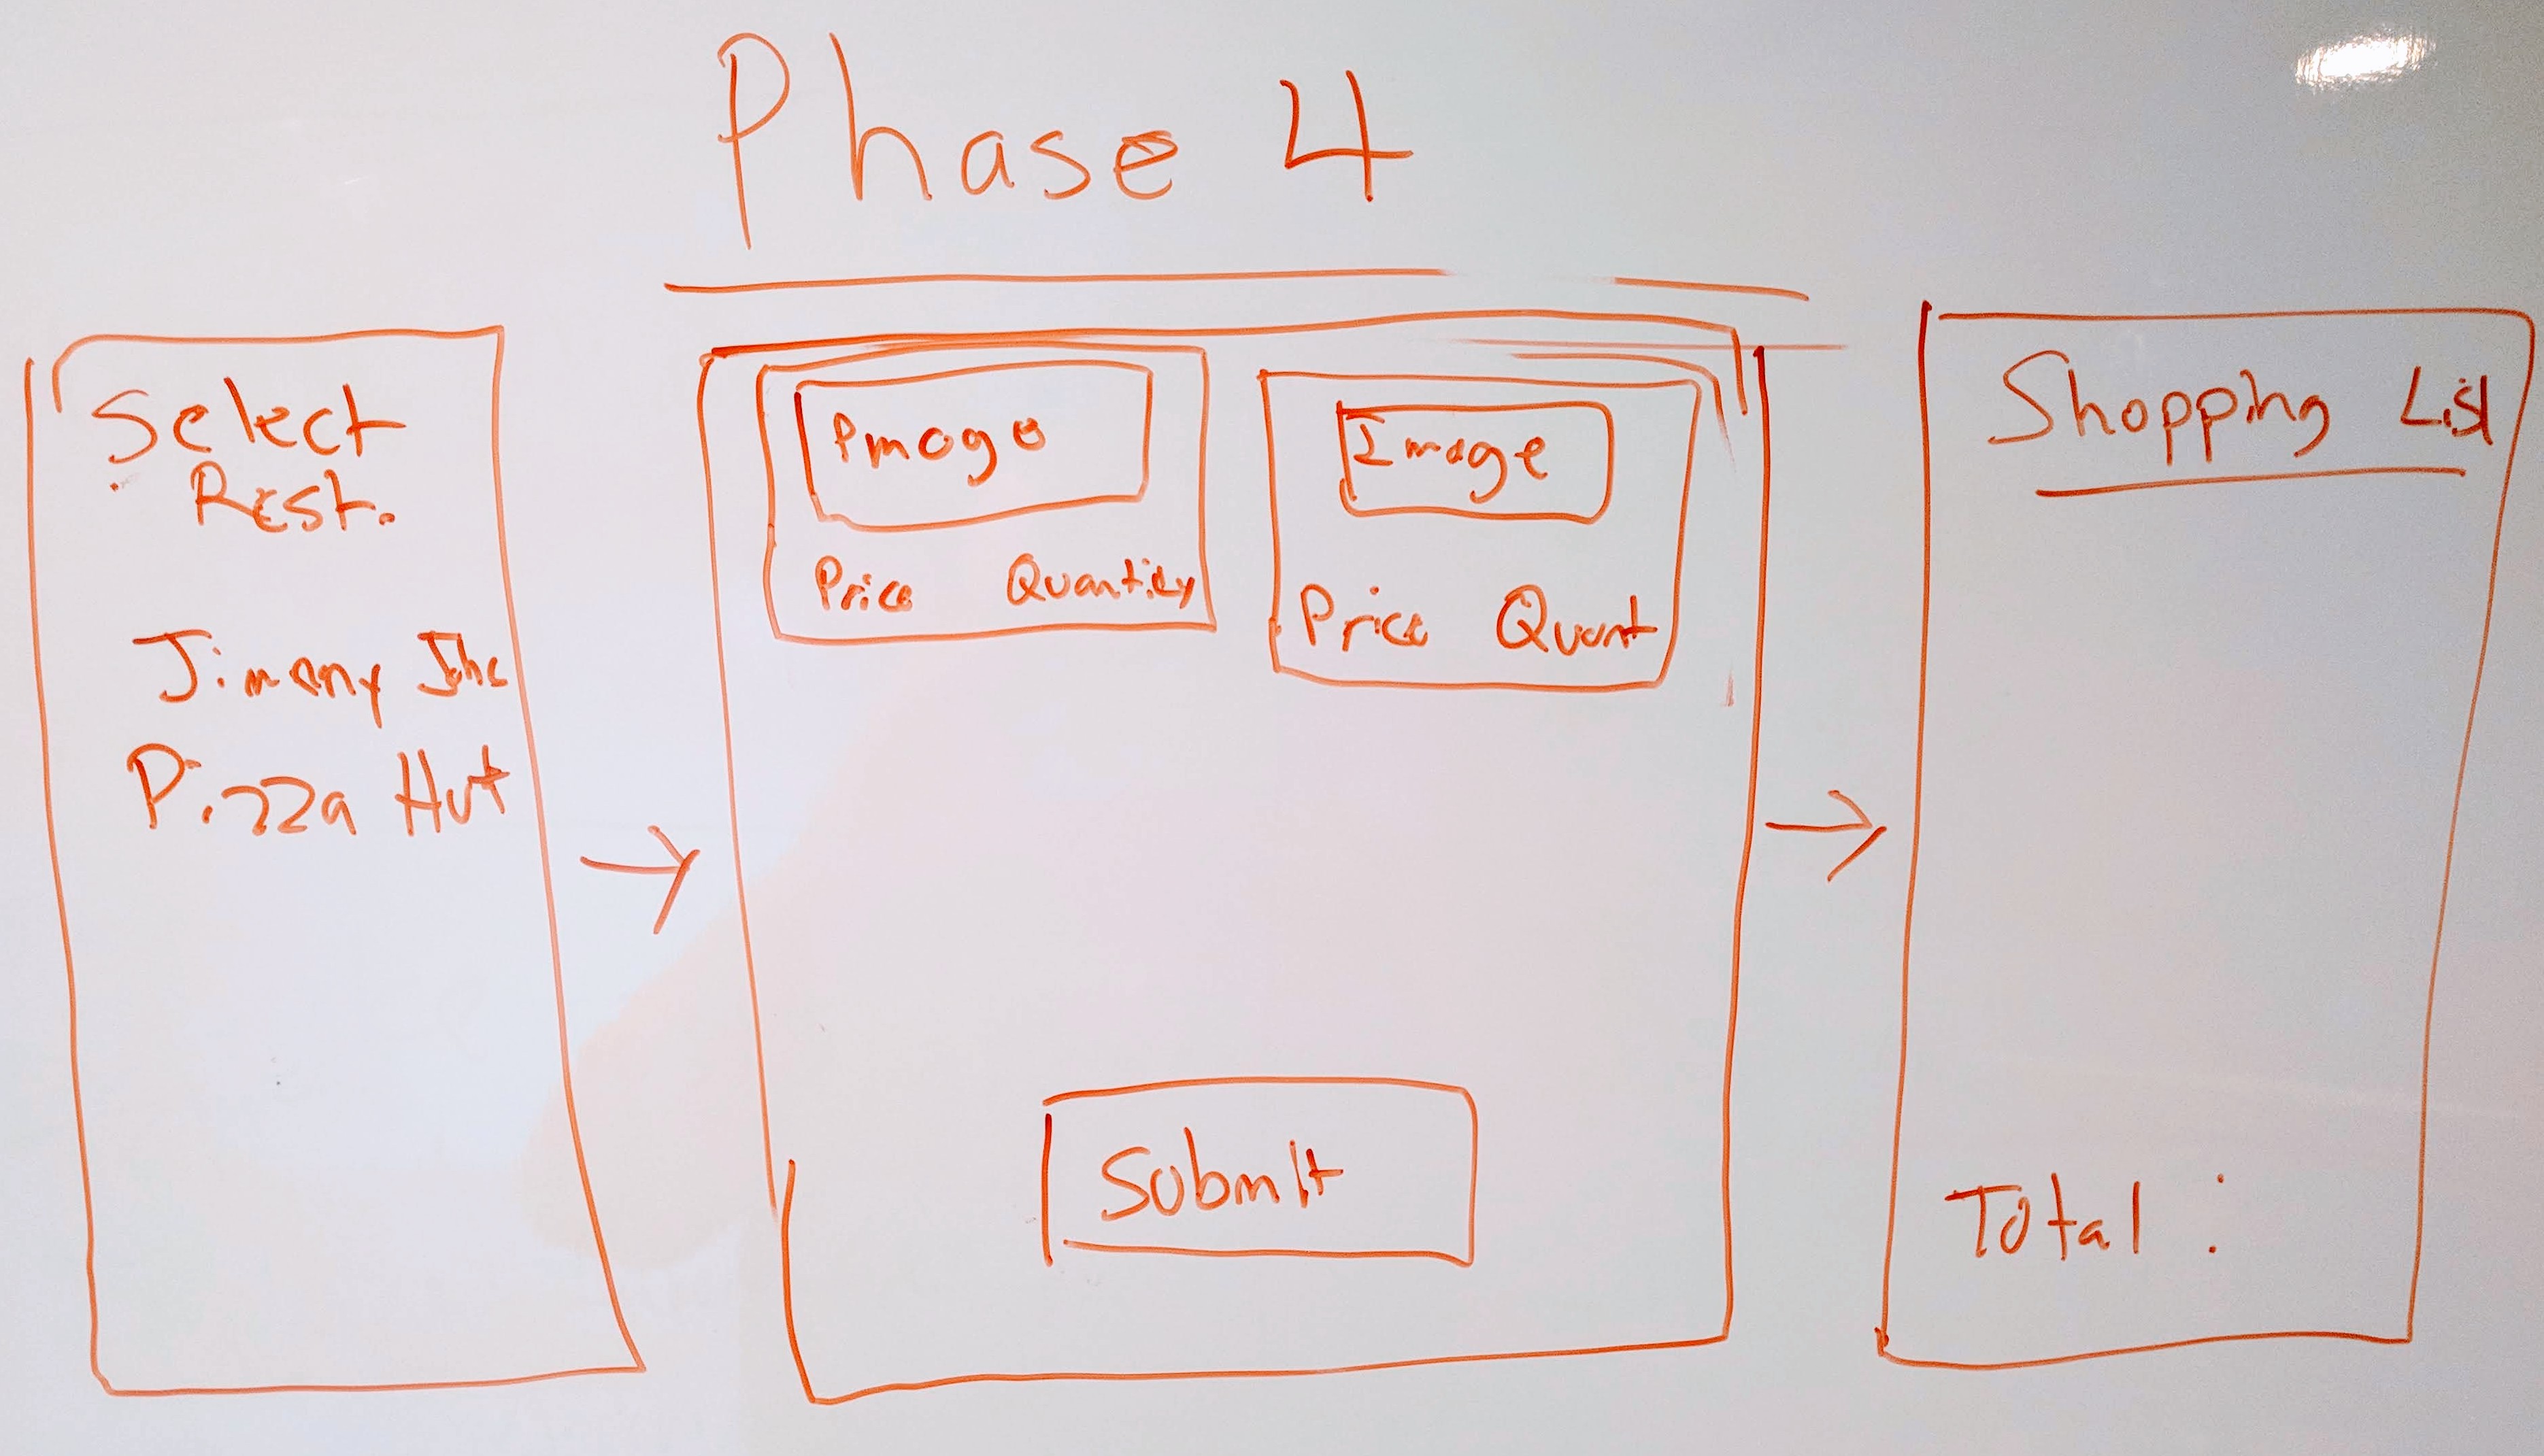 Phase 4
Select
Rest.
Jimmy Johs
Pizza Hut
Image
Price Quantity
Image
Price Quant
Submit
Shopping List
Total :